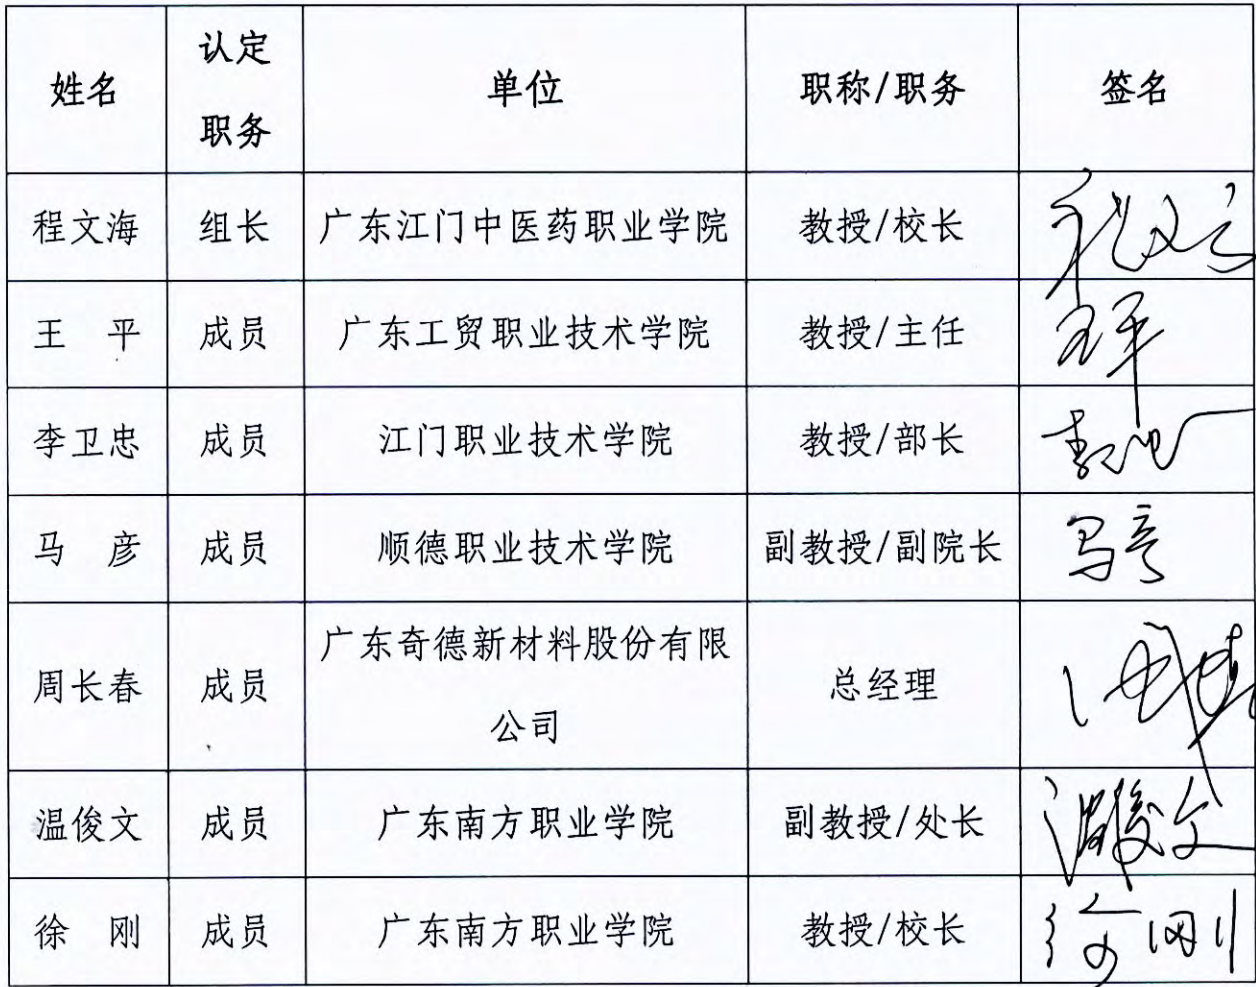 姓名 认定职务 单位 职称/职务 签名
程文海 组长 广东江门中医药职业学院 教授/校长
王 平 成员 广东工贸职业技术学院 教授/主任 王平
李卫忠 成员 江门职业技术学院 教授/部长
马 彦 成员 顺德职业技术学院 副教授/副院长 马彦
周长春 成员 广东奇德新材料股份有限公司 总经理
温俊文 成员 广东南方职业学院 副教授/处长 温俊文
徐 刚 成员 广东南方职业学院 教授/校长 徐刚